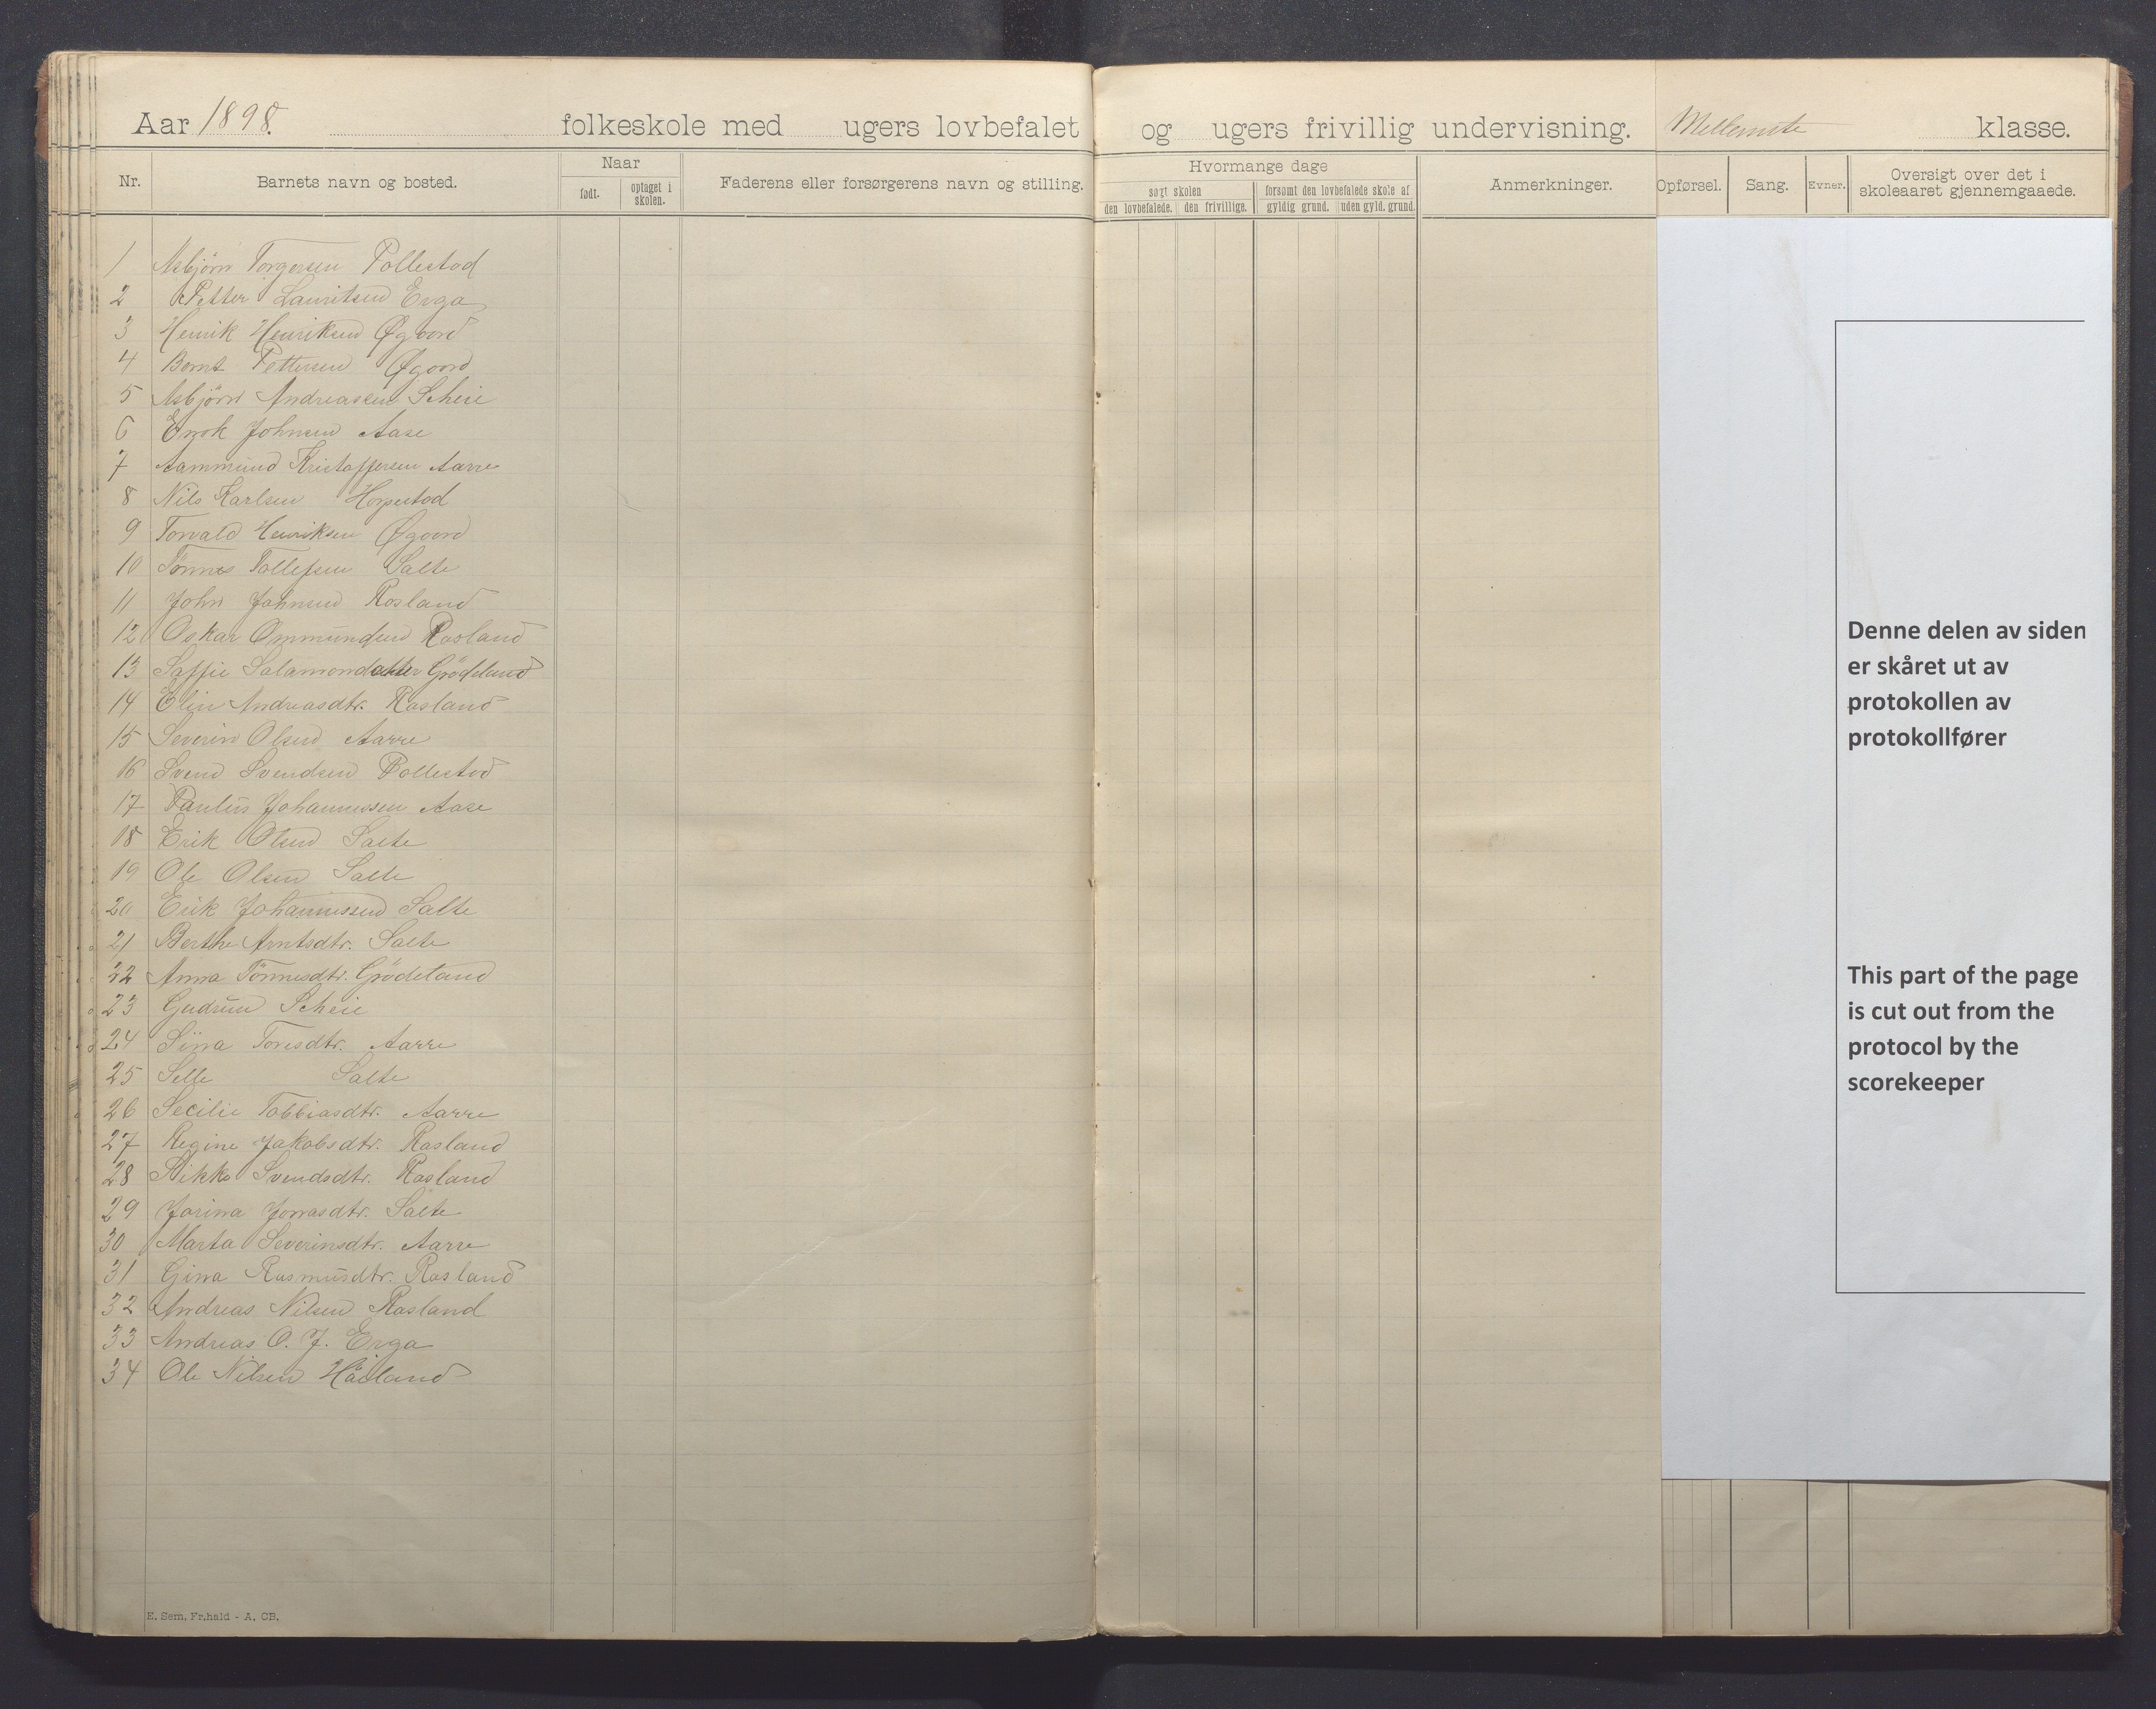 Aar 1898. folkeskole med ugers lovbefalet og ugers frivillig undervisning. Mellemste klasse.
Nr. Barnets navn og bosted. Naar født. optaget i skolen. Faderens eller forsørgerens navn og stilling. Hvormange dage søgt skolen den lovbefalede. den frivillige. forsømt den lovbefalede skole af gyldig grund. uden gyld. grund. Anmerkninger. Opførsel. Sang. Evner. Oversigt over det i skoleaaret gjennemgaaede.
1 Asbjörn Torgersen Pollestad
2 Petter Lauritsen Erga
3 Henrik Henriksen Øgaard
4 Bernt Pettersen Øgaard
5 Asbjörn Andreassen Scheie
6 Enok Johnsen Aase
7 Aammund Kristoffersen Aarre
8 Nils Karlsen Horpestad
9 Torvald Henriksen Øgaard
10 Tönnes Tollefsen Salte
11 John Johnsen Rosland
12 Oskar Ommundsen Rosland
13 Saffie Salamondatter Grödeland
14 Elin Andreasdtr. Rosland
15 Severin Olsen Aarre
16 Svend Svendsen Pollestad
17 Paulus Johannessen Aase
18 Erik Olsen Salte
19 Ole Olsen Salte
20 Erik Johannessen Salte
21 Berthe Arntsdtr. Salte
22 Anna Tönnesdtr. Grödeland
23 Gudrun Scheie
24 Sina Toresdtr. Aarre
25 Selle Salte
26 Secilie Tobbiasdtr. Aarre
27 Regine Jakobsdtr. Rosland
28 Rikka Svendsdtr. Rosland
29 Jorina Jonasdtr. Salte
30 Marta Severinsdtr. Aarre
31 Gina Rasmusdtr. Rosland
32 Andreas Nilsen Rosland
33 Andreas O. J. Erga
34 Ole Nilsen Håland
E. Sem, Fr.hald - A. CB.
Denne delen av siden
er skåret ut av
protokollen av
protokollfører
This part of the page
is cut out from the
protocol by the
scorekeeper